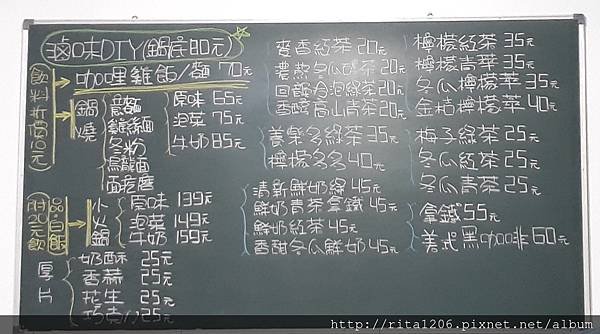 滷味DIY(鍋底80元)
咖哩雞飯/麵 70元
飲料折價(10元)
鍋燒
意麵
雞絲麵
冬粉
烏龍面
面疙瘩
原味 65元
泡菜 75元
牛奶 85元
附20元飲品、白飯
小火鍋
原味 139元
泡菜 149元
牛奶 159元
厚片
奶酥 25元
香蒜 25元
花生 25元
巧克力 25元
麥香紅茶 20元
濃熬冬瓜茶 20元
回韻冷泡綠茶 20元
香醇高山青茶 20元
養樂多綠茶 35元
檸檬多多 40元
清新鮮奶綠 45元
鮮奶青茶拿鐵 45元
鮮奶紅茶 45元
香甜冬瓜鮮奶 45元
檸檬紅茶 35元
檸檬青苹 35元
冬瓜檸檬苹 35元
金桔檸檬苹 40元
梅子綠茶 25元
冬瓜紅茶 25元
冬瓜青茶 25元
拿鐵 55元
美式黑咖啡 60元
http://rita1206.pixnet.net/album